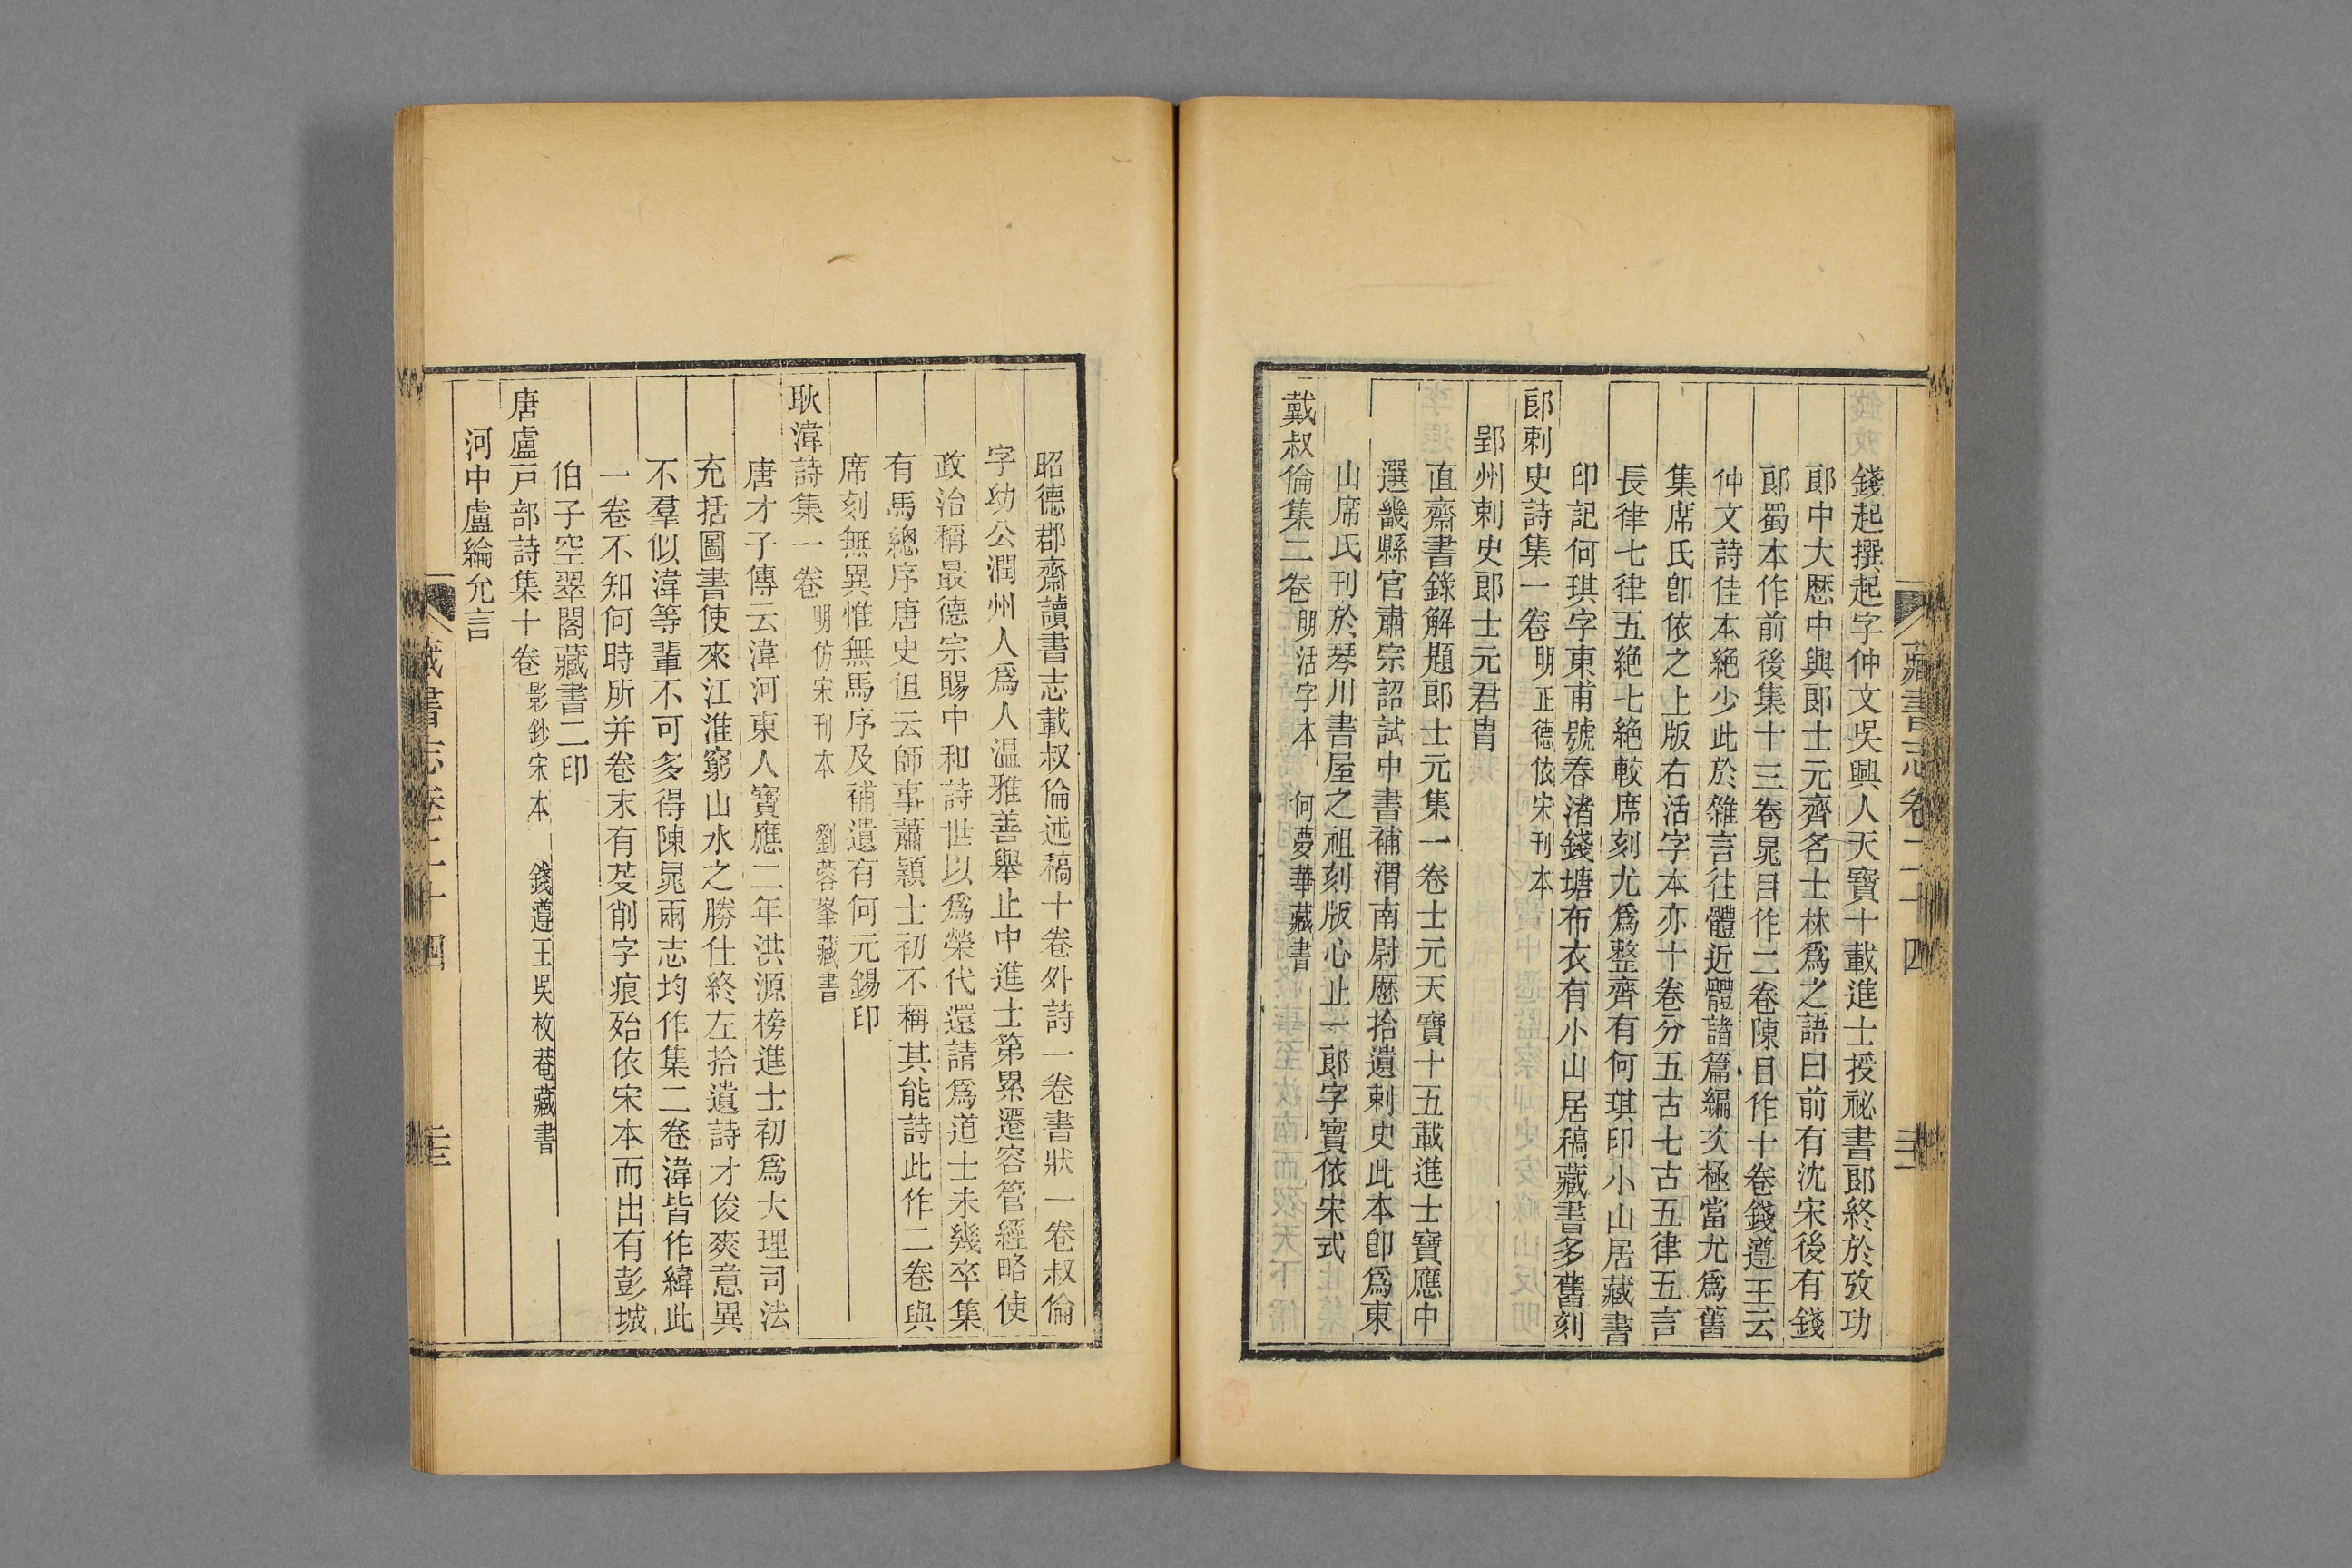 錢起撰起字仲文吳興人天寶十載進士授祕書郎終於攷功
郎中大厯中與郎士元齊名士林爲之語曰前有沈宋後有錢
郎蜀本作前後集十三卷晁目作二卷陳目作十卷錢遵王云
仲文詩佳本絕少此於雜言往體近體諸篇編次極當尤爲舊
集席氏卽依之上版右活字本亦十卷分五古七古五律五言
長律七律五絕七絕較席刻尤爲整齊有何琪印小山居藏書
印記何琪字東甫號春渚錢塘布衣有小山居稿藏書多舊刻
郎刺史詩集一卷 明正德依宋刊本
郢州刺史郎士元君胄
直齋書錄解題郎士元集一卷士元天寶十五載進士寶應中
選畿縣官肅宗詔試中書補渭南尉厯拾遺刺史此本卽爲東
山席氏刊於琴川書屋之祖刻版心止一郎字實依宋式
戴叔倫集二卷 明活字本 何夢華藏書
藏書志卷二十四
昭德郡齋讀書志載叔倫述稿十卷外詩一卷書狀一卷叔倫
字幼公潤州人爲人温雅善舉止中進士第累遷容管經略使
政治稱最德宗賜中和詩世以爲榮代還請爲道士未幾卒集
有馬總序唐史但云師事蕭穎士初不稱其能詩此作二卷與
席刻無異惟無馬序及補遺有何元錫印
耿湋詩集一卷 明仿宋刊本 劉蓉峯藏書
唐才子傳云湋河東人寶應二年洪源榜進士初爲大理司法
充括圖書使來江淮窮山水之勝仕終左拾遺詩才俊爽意異
不羣似湋等輩不可多得陳晁兩志均作集二卷湋皆作緯此
一卷不知何時所并卷末有芟削字痕殆依宋本而出有彭城
伯子空翠閣藏書二印
唐盧戸部詩集十卷 影鈔宋本 錢遵王吳枚菴藏書
河中盧綸允言
藏書志卷二十四